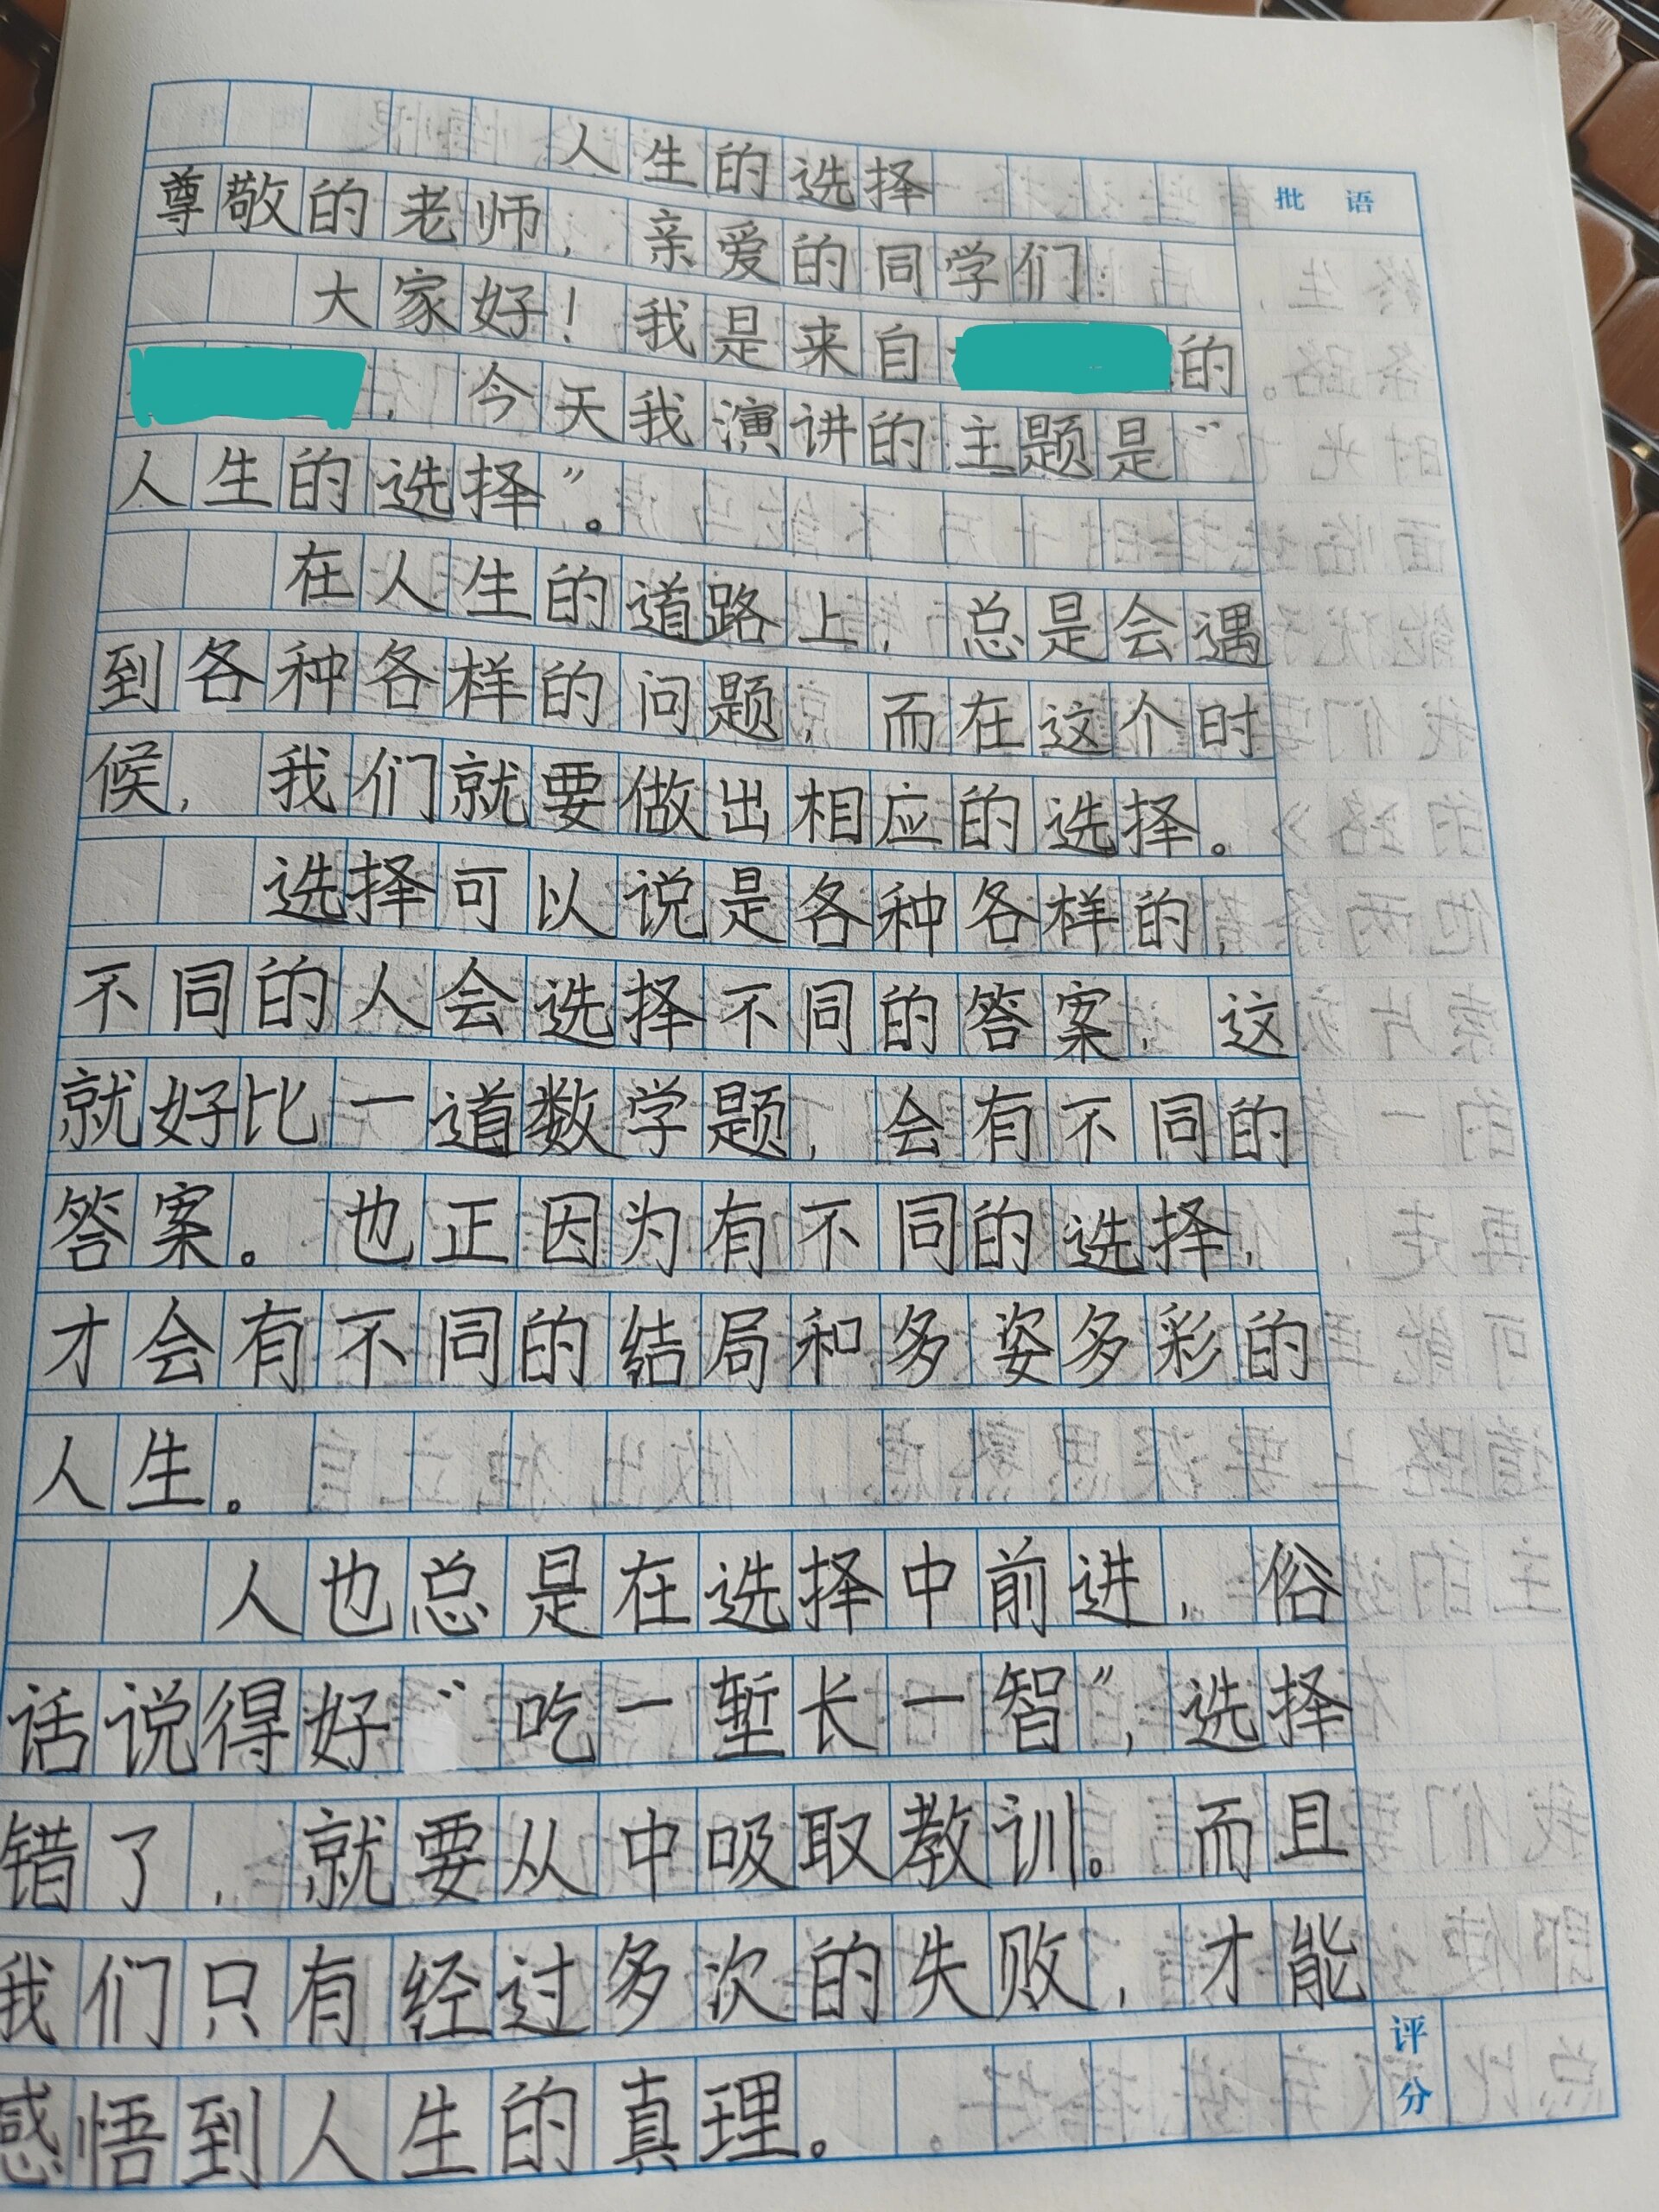 人生的选择
批 语
尊敬的老师，亲爱的同学们：
大家好！我是来自的
，今天我演讲的主题是“
人生的选择”。
在人生的道路上，总是会遇
到各种各样的问题，而在这个时
候，我们就要做出相应的选择。
选择可以说是各种各样的，
不同的人会选择不同的答案，这
就好比一道数学题，会有不同的
答案。也正因为有不同的选择，
才会有不同的结局和多姿多彩的
人生。
人也总是在选择中前进，俗
话说得好“吃一堑长一智”，选择
错了，就要从中吸取教训。而且
我们只有经过多次的失败，才能
感悟到人生的真理。
评分